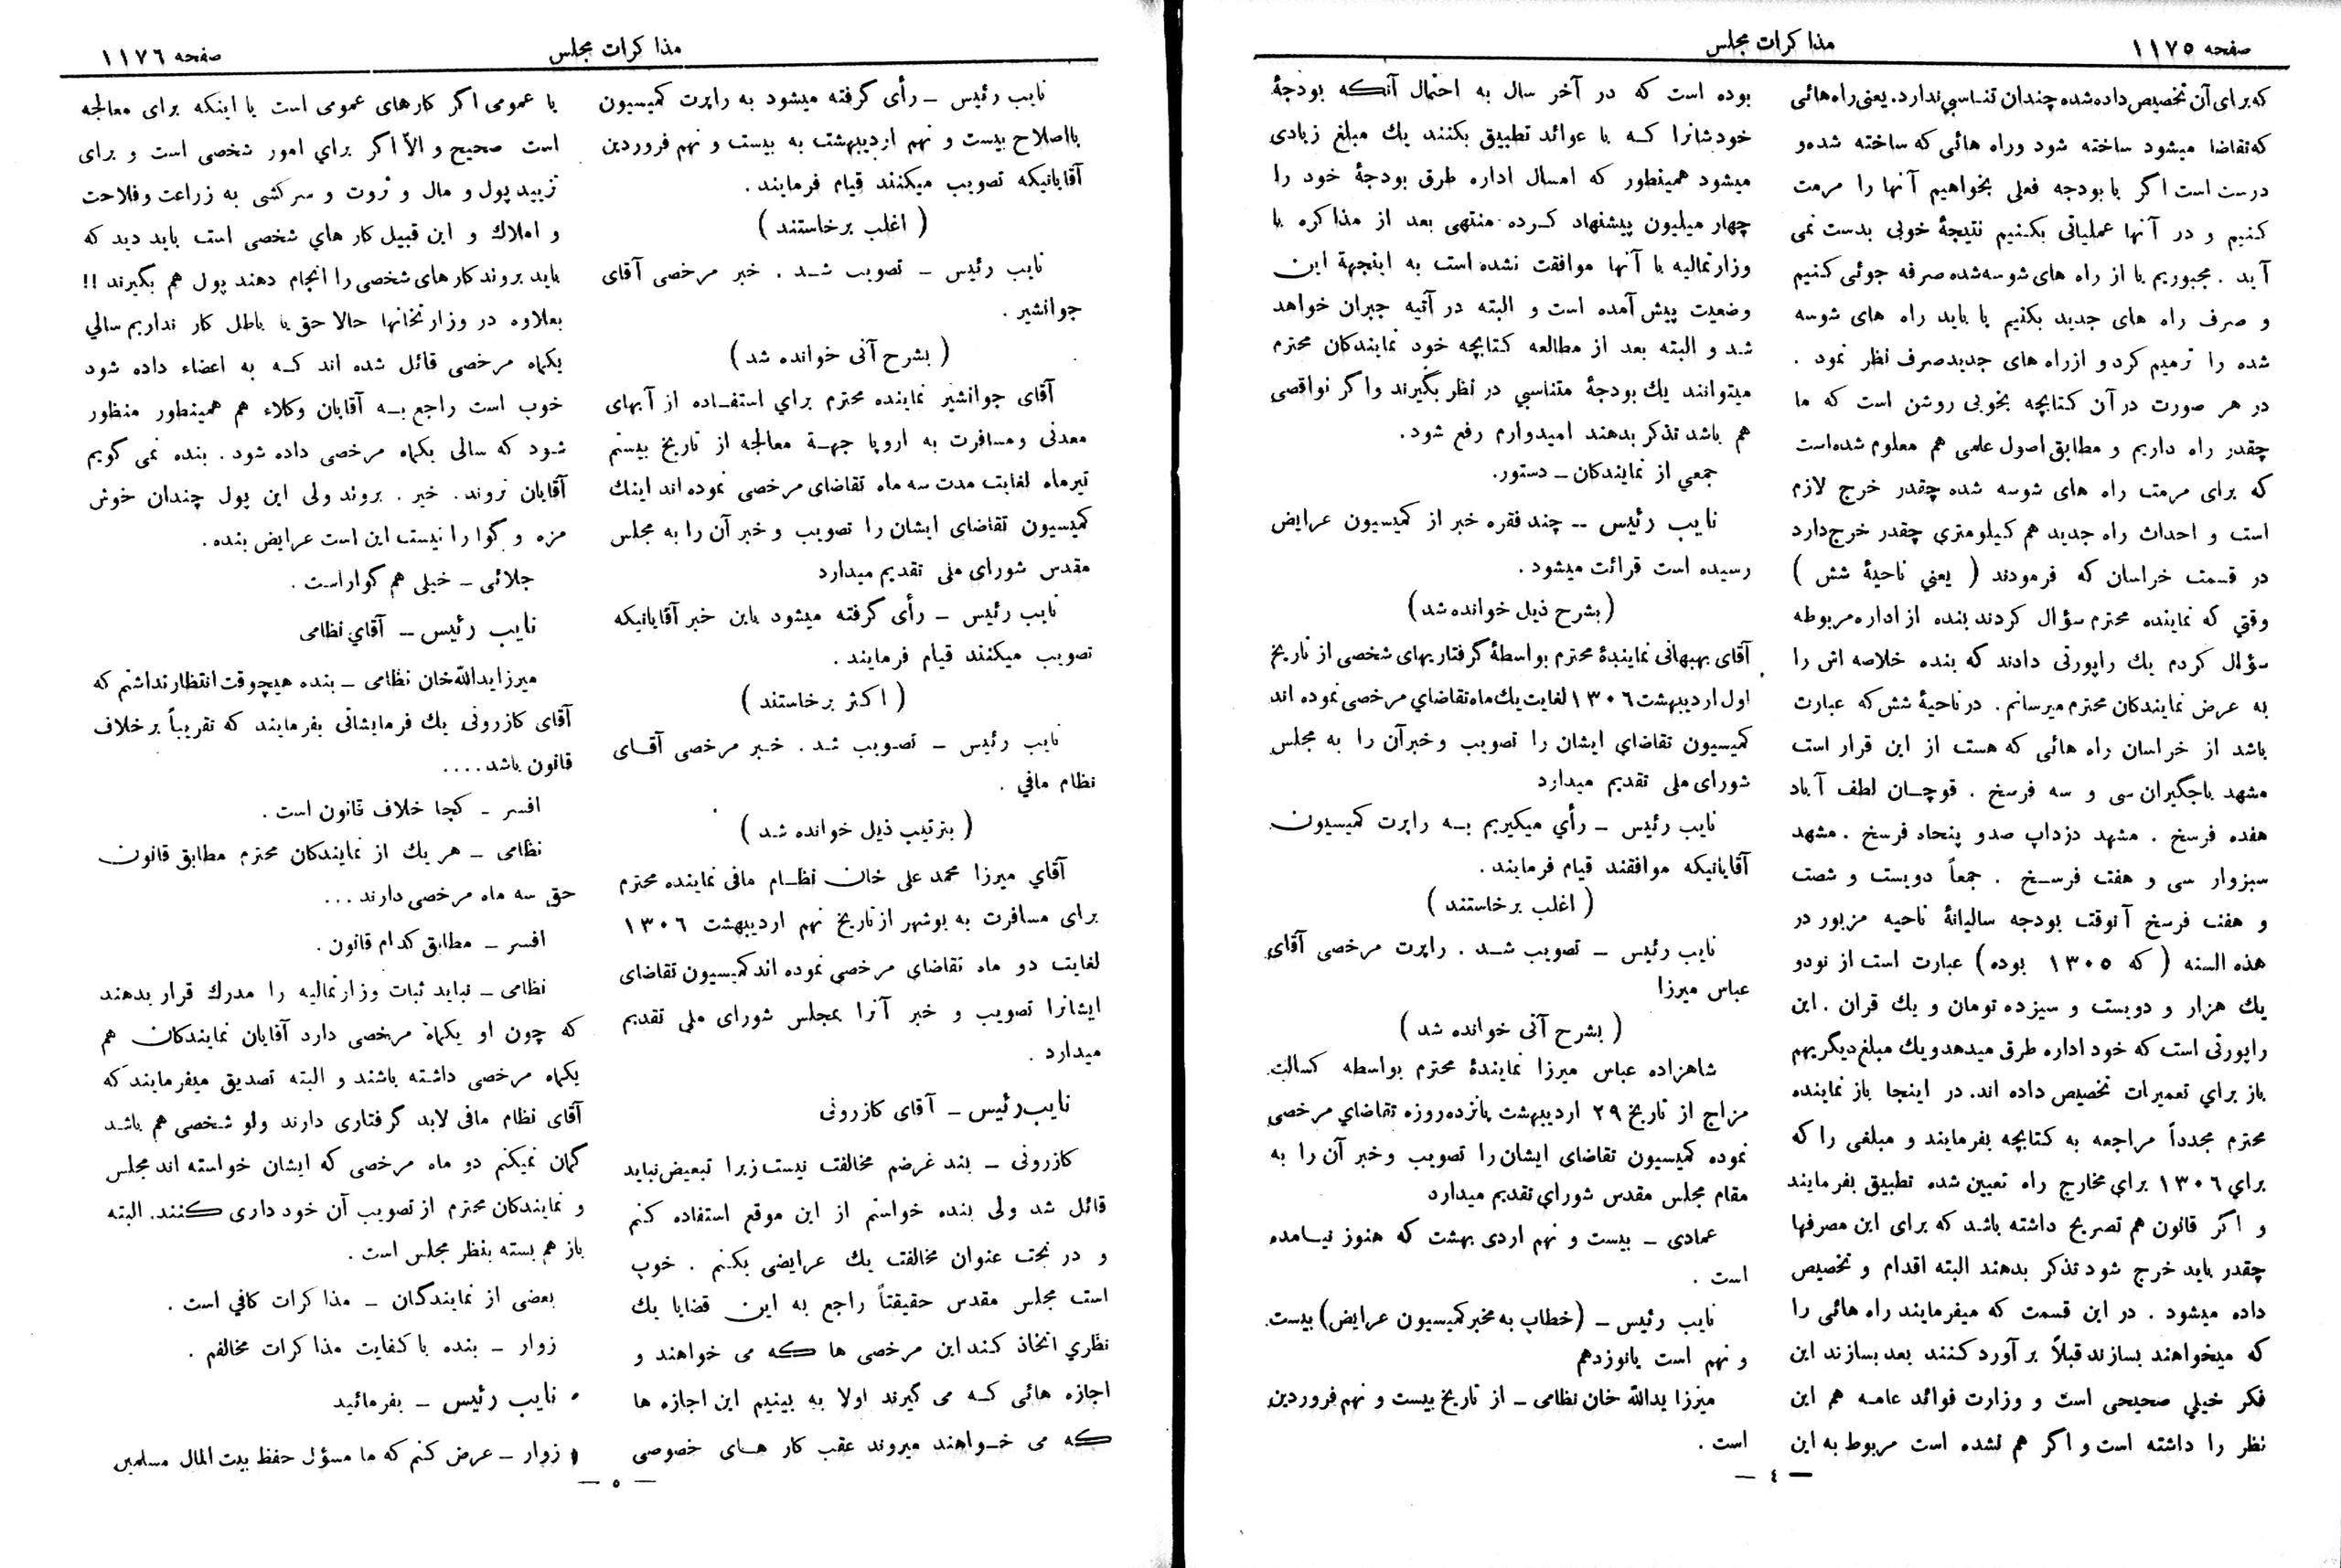 صفحه ١١٧٥
مذاکرات مجلس
که برای آن تخصیص داده شده چندان تناسبي ندارد. یعنی راه هائی
که تقاضا میشود ساخته شود وراه هائی که ساخته شده و
درست است اگر با بودجه فعلی بخواهیم آنها را مرمت
کنیم و در آنها عملیاتی بکنیم نتیجهٔ خوبی بدست نمی
آید . مجبوریم یا از راه های شوسه شده صرفه جوئی کنیم
و صرف راه های جدید بکنیم یا باید راه های شوسه
شده را ترمیم کرد و ازراه های جدید صرف نظر نمود .
در هر صورت در آن کتابچه بخوبی روشن است که ما
چقدر راه داریم و مطابق اصول علمی هم معلوم شده است
که برای مرمت راه های شوسه شده چقدر خرج لازم
است و احداث راه جدید هم کیلومتري چقدر خرج دارد
در قسمت خراسان که فرمودند ( یعني ناحیهٔ شش )
وقتي که نماینده محترم سؤال کردند بنده از اداره مربوطه
سؤال کردم یك راپورتی دادند که بنده خلاصه اش را
به عرض نمایندکان محترم میرسانم . در ناحیهٔ شش که عبارت
باشد از خراسان راه هائی که هست از این قرار است
مشهد باجگیران سی و سه فرسخ . قوچان لطف آباد
هفده فرسخ . مشهد دزداب صدو پنجاه فرسخ . مشهد
سبزوار سی و هفت فرسخ . جمعاً دویست و شصت
و هفت فرسخ آنوقت بودجه سالیانهٔ ناحیه مزبور در
هذه السنه ( که ١٣٠٥ بوده ) عبارت است از نودو
یك هزار و دویست و سیزده تومان و یك قران . این
راپورتی است که خود اداره طرق میدهد ویك مبلغ دیگر بهم
باز براي تعمیرات تخصیص داده اند. در اینجا باز نماینده
محترم مجدداً مراجعه به کتابچه بفرمایند و مبلغی را که
براي ١٣٠٦ براي مخارج راه تعیین شده تطبیق بفرمایند
و اگر قانون هم تصریح داشته باشد که برای این مصرفها
چقدر باید خرج شود تذکر بدهند البته اقدام و تخصیص
داده میشود . در این قسمت که میفرمایند راه هائی را
که میخواهند بسازند قبلاً بر آورد کنند بعد بسازند این
فکر خیلي صحیحی است و وزارت فوائد عامه هم این
نظر را داشته است و اگر هم نشده است مربوط به این
بوده است که در آخر سال به احتمال آنکه بودجهٔ
خودشانرا که با عوائد تطبیق بکنند یك مبلغ زیادی
میشود همینطور که امسال اداره طرق بودجهٔ خود را
چهار میلیون پیشنهاد کرده منتهی بعد از مذاکره با
وزارتمالیه با آنها موافقت نشده است به اینجهة این
وضعیت پیش آمده است و البته در آتیه جبران خواهد
شد و البته بعد از مطالعه کتابچه خود نمایندکان محترم
میتوانند یك بودجهٔ متناسبي در نظر بگیرند واگر نواقصی
هم باشد تذکر بدهند امیدوارم رفع شود .
جمعي از نمایندکان ــ دستور.
نایب رئیس ــ چند فقره خبر از کمیسیون عرایض
رسیده است قرائت میشود .
( بشرح ذیل خوانده شد )
آقای بهبهانی نمایندهٔ محترم بواسطهٔ گرفتاریهای شخصی از تاریخ
اول اردیبهشت ١٣٠٦ لغایت یك ماه تقاضاي مرخصی نموده اند
کمیسیون تقاضاي ایشان را تصویب و خبر آن را به مجلس
شورای ملی تقدیم میدارد
نایب رئیس ــ رأي میگیریم به راپرت کمیسیون
آقایانیکه موافقند قیام فرمایند .
( اغلب برخاستند )
نایب رئیس ــ تصویب شد . راپرت مرخصی آقای
عباس میرزا
( بشرح آتی خوانده شد )
شاهزاده عباس میرزا نمایندهٔ محترم بواسطه کسالت
مزاج از تاریخ ٢٩ اردیبهشت پانزده روزه تقاضاي مرخصی
نموده کمیسیون تقاضای ایشان را تصویب و خبر آن را به
مقام مجلس مقدس شوراي تقدیم میدارد
عمادی ــ بیست و نهم اردی بهشت که هنوز نیامده
است .
نایب رئیس ــ (خطاب به مخبر کمیسیون عرایض) بیست
و نهم است یا نوزدهم
میرزا یدالله خان نظامی ــ از تاریخ بیست و نهم فروردین
است .
— ٤ —
مذاکرات مجلس
صفحه ١١٧٦
نایب رئیس ــ رأی گرفته میشود به راپرت کمیسیون
بااصلاح بیست و نهم اردیبهشت به بیست و نهم فروردین
آقایانیکه تصویب میکنند قیام فرمایند .
( اغلب برخاستند )
نایب رئیس ــ تصویب شد . خبر مرخصی آقای
جوانشیر .
( بشرح آتی خوانده شد )
آقای جوانشیر نماینده محترم براي استفاده از آبهای
معدنی ومسافرت به اروپا جهة معالجه از تاریخ بیستم
تیرماه لغایت مدت سه ماه تقاضای مرخصی نموده اند اینك
کمیسیون تقاضای ایشان را تصویب و خبر آن را به مجلس
مقدس شورای ملی تقدیم میدارد
نایب رئیس ــ رأی گرفته میشود باین خبر آقایانیکه
تصویب میکنند قیام فرمایند .
( اکثر برخاستند )
نایب رئیس ــ تصویب شد . خبر مرخصی آقای
نظام مافي .
( بترتیب ذیل خوانده شد )
آقاي میرزا محمد علی خان نظام مافی نماینده محترم
برای مسافرت به بوشهر از تاریخ نهم اردیبهشت ١٣٠٦
لغایت دو ماه تقاضای مرخصي نموده اند کمیسیون تقاضای
ایشانرا تصویب و خبر آنرا بمجلس شورای ملی تقدیم
میدارد .
نایب رئیس ــ آقای کازرونی
کازرونی ــ بند غرضم مخالفت نیست زیرا تبعیض نباید
قائل شد ولی بنده خواستم از این موقع استفاده کنم
و در تحت عنوان مخالفت یك عرایضی بکنم . خوب
است مجلس مقدس حقیقتاً راجع به این قضایا یك
نظري اتخاذ کند این مرخصی ها که می خواهند و
اجازه هائی که می گیرند اولا به بینیم این اجازه ها
که می خواهند میروند عقب کار های خصوصی
یا عمومی اگر کارهای عمومی است یا اینکه برای معالجه
است صحیح و الاّ اگر براي امور شخصی است و برای
تزیید پول و مال و ثروت و سرکشی به زراعت وفلاحت
و املاك و این قبیل کار هاي شخصی است باید دید که
باید بروند کارهای شخصی را انجام دهند پول هم بگیرند !!
بعلاوه در وزارتخانها حالا حق یا باطل کار نداریم سالي
یکماه مرخصی قائل شده اند که به اعضاء داده شود
خوب است راجع به آقایان وکلاء هم همینطور منظور
شود که سالی یکماه مرخصی داده شود . بنده نمی گویم
آقایان نروند . خیر . بروند ولی این پول چندان خوش
مزه و گوارا نیست این است عرایض بنده .
جلائی ــ خیلی هم گواراست .
نایب رئیس ــ آقاي نظامی
میرزا یدالله خان نظامی ــ بنده هیچوقت انتظار نداشتم که
آقای کازرونی یك فرمایشاتی بفرمایند که تقریباً برخلاف
قانون باشد ....
افسر ــ کجا خلاف قانون است .
نظامی ــ هریك از نمایندکان محترم مطابق قانون
حق سه ماه مرخصی دارند ...
افسر ــ مطابق کدام قانون .
نظامی ــ نباید ثبات وزارتمالیه را مدرك قرار بدهند
که چون او یکماه مرخصی دارد آقایان نمایندکان هم
یکماه مرخصی داشته باشند و البته تصدیق میفرمایند که
آقای نظام مافی لابد گرفتاری دارند ولو شخصی هم باشد
گمان نمیکنم دو ماه مرخصی که ایشان خواسته اند مجلس
و نمایندکان محترم از تصویب آن خود داری کنند. البته
باز هم بسته بنظر مجلس است .
بعضی از نمایندگان ــ مذاکرات کافي است .
زوار ــ بنده با کفایت مذاکرات مخالفم .
نایب رئیس ــ بفرمائید
زوار ــ عرض کنم که ما مسؤل حفظ بیت المال مسلمین
— ٥ —